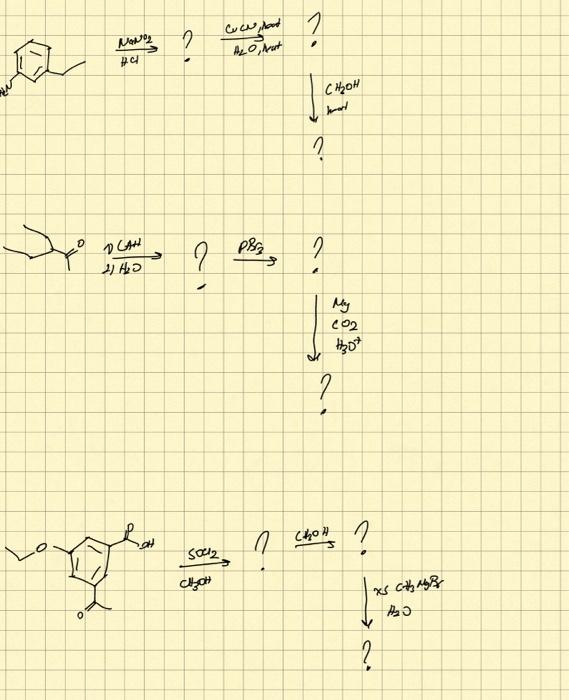 NaNO2
HCl
?
CuCN, heat
H2O, heat
?
H2N
CH3OH
heat
?
O
1) LAH
2) H2O
?
PBr3
?
Mg
CO2
H3O+
?
O
O
OH
SOCl2
CH3OH
?
CH3OH
?
O
xs CH3MgBr
H2O
?